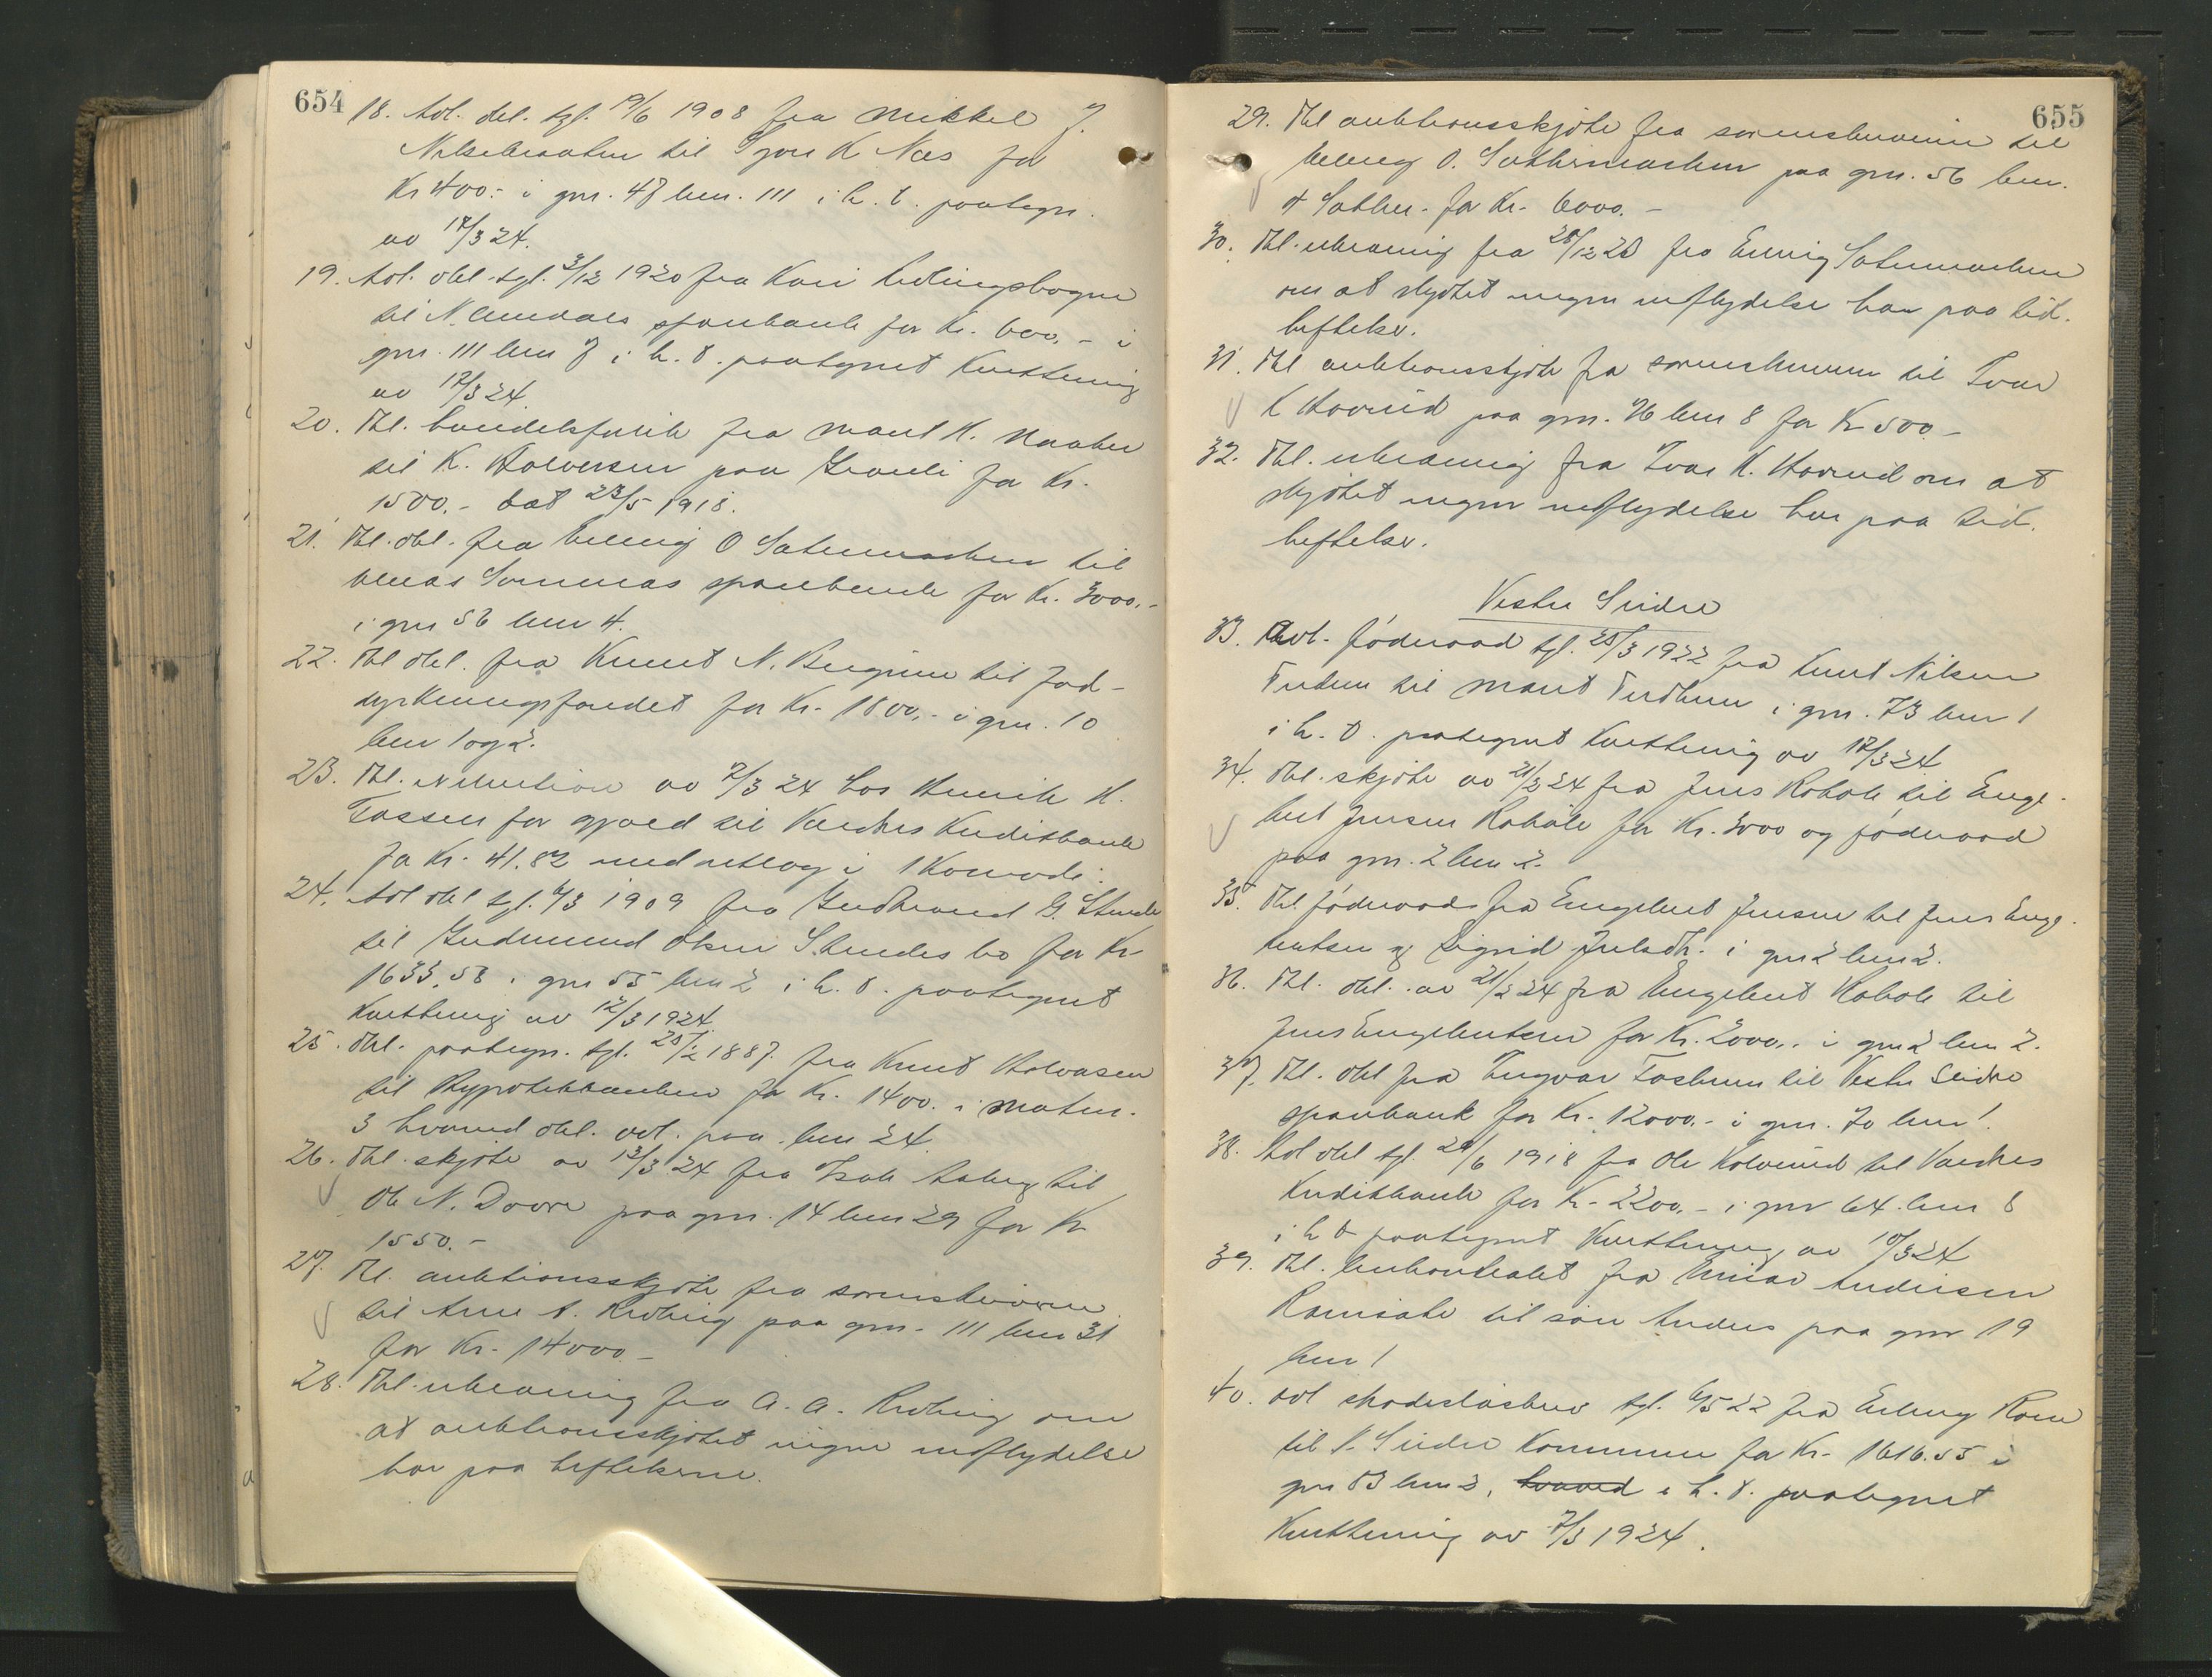 654
18. Avl. obl. tgl. 19/6 1908 fra Mikkel J.
til Sjur K Næs for
Kr 400.- i gnr. 47 bnr. 111 i h. t. paategn.
av 17/3 24.
19. Avl. obl. tgl. 3/12 1920 fra Kari
til N. Aurdals sparebank for Kr. 600.- i
gnr. 111 bnr 7 i h. t. paategnet kvittering
av 17/3 24.
20. Thl. fra Marit H.
til K. Halvorsen paa for Kr.
1500.- dat 23/5 1918.
21. Thl. obl. fra Erling O Sætermarken til
sparebank for Kr. 3000.-
i gnr 56 bnr 4.
22. Thl obl. fra Knut N. til Jord-
dyrkningsfondet for Kr. 1800.- i gnr. 10
bnr 1 og 2.
23. Thl. Execution av 7/3 24 hos Henrik H.
Fossen for gjæld til Valdres Kreditbank
for Kr. 41.82 med utlæg i 1 Komode.
24. Avl obl tgl. 6/3 1909 fra Gudbrand G. Strande
til Gudmund Olsen Strandes bo for Kr
1633.58 i gnr 55 bnr 2 i h. t. paategnet
kvittering av 12/3 1924.
25. Thl. paategn. tgl. 25/2 1887 fra Knut Halvorsen
til Hypotekbanken for Kr. 1400. i Matnr.
3 hvorved obl. avl. paa bnr 24.
26. Thl. skjøte av 13/3 24 fra Isak Aaberg til
Ole N. Dovre paa gnr. 14 bnr 29 for Kr
1550.-
27. Thl. auktionsskjøte fra sorenskriveren
til Arne A. Kvding paa gnr. 111 bnr 31
for Kr. 14000.-
28. Thl. erklæring fra A. A. om
at auktionsskjøtet ingen indflydelse
har paa heftelserne.
655
29. Thl auktionsskjøte fra sorenskriveren til
Erling O. Sætermarken paa gnr. 56 bnr.
4 for Kr. 6000.-
30. Thl. erklæring fra 28/12 23 fra Erling Sætermarken
om at skjøtet ingen indflydelse har paa tid.
heftelser.
31. Thl auktionsskjøte fra sorenskriveren til Ivar
K Havrud paa gnr. 76 bnr 8 for Kr 500.-
32. Thl. erklæring fra Ivar K. Havrud om at
skjøtet ingen indflydelse har paa tid.
heftelser.
Vestre Slidre
33. Avl. föderaad tgl. 25/3 1922 fra Knut Nilsen
til Marit i gnr. 73 bnr 1
i h. t. paategnet kvittering av 17/3 24
34. Thl. skjøte av 21/2 24 fra Jens Kobole til Enge-
bret Jensen Kobole for Kr. 3000 og föderaad
paa gnr. 2 bnr 2.
35. Thl föderaad fra Engebret Jensen til Jens Enge-
bretsen og Sigrid i gnr 2 bnr 2.
36. Thl. obl. av 21/2 24 fra Engebret Kobole til
Jens Engebretsen for Kr. 2000.- i gnr 2 bnr 2.
37. Thl. obl fra Ingvar til Vestre Slidre
sparebank for Kr. 12000.- i gnr. 70 bnr 1.
38. Avl obl tgl. 29/6 1918 fra Ole til Valdres
Kreditbank for Kr. 2200.- i gnr 64 bnr 8
i h t paategnet kvittering av 10/3 24
39. Thl. fra Andersen
til søn Anders paa gnr 19
bnr 1
40. Avl skadesløsbrev tgl. 6/5 22 fra Erling
til V. Slidre Kommune for Kr. 1616.55 i
gnr 73 bnr 3, hvorved i h. t. paategnet
kvittering av 7/3 1924.